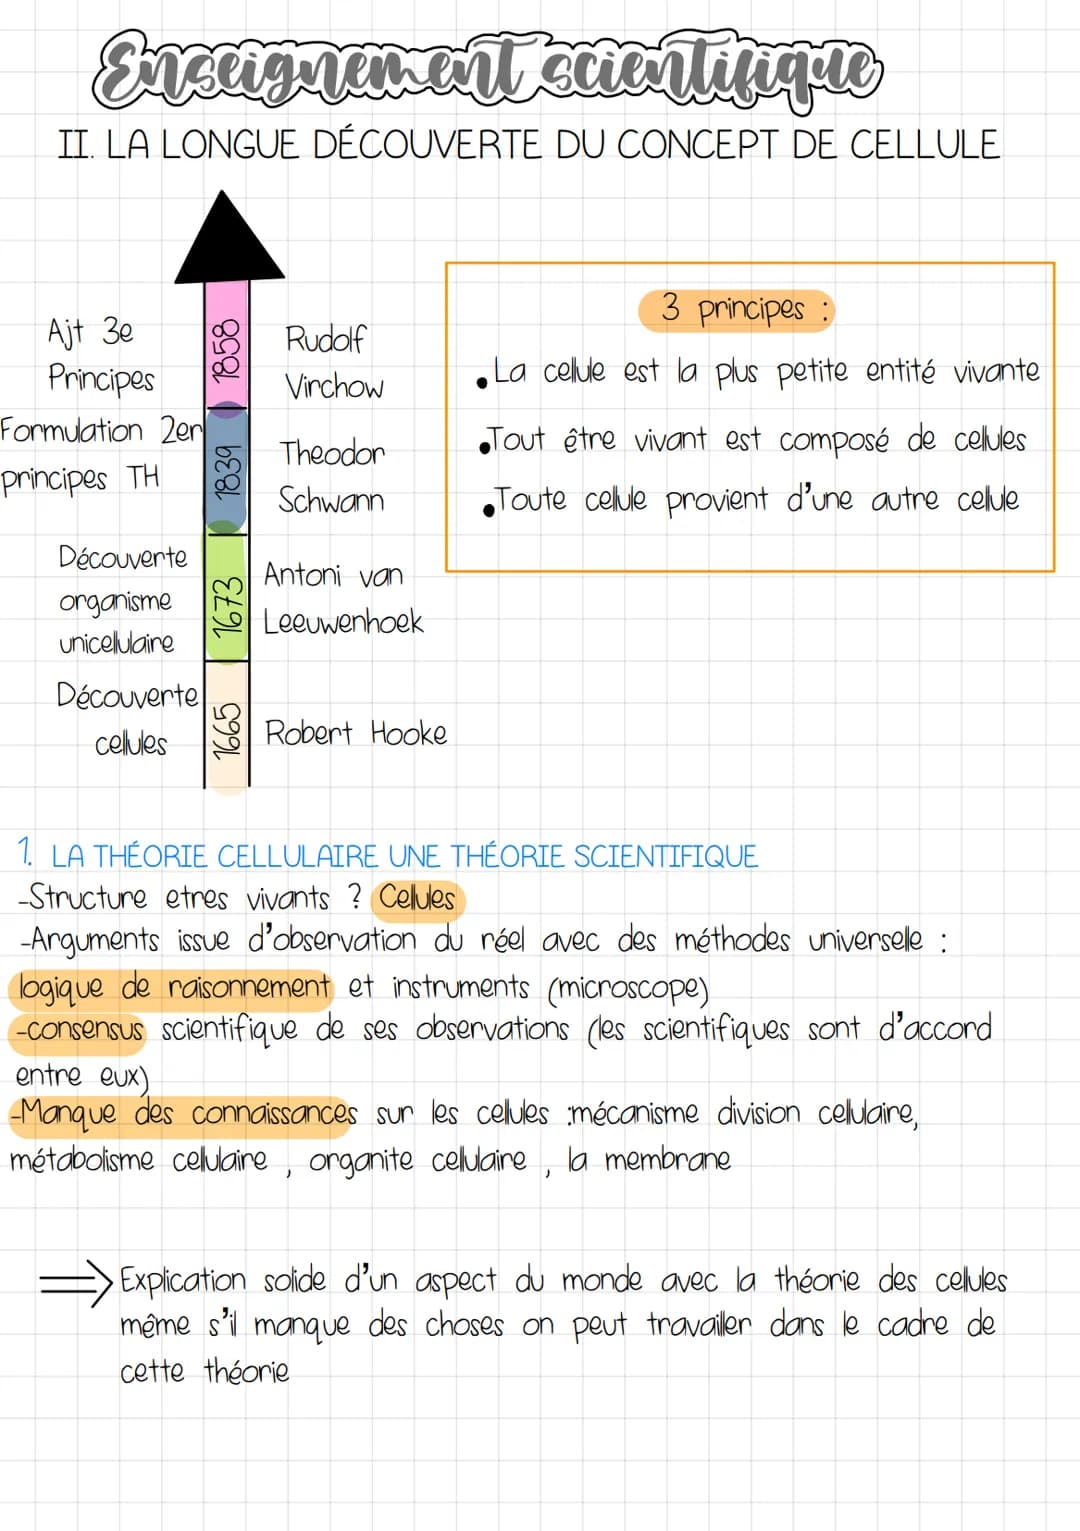 Enseignement scientifique
II. LA LONGUE DÉCOUVERTE DU CONCEPT DE CELLULE
Ajt 3e
Principes
1858
Rudolf
Virchow
Formulation 2er
principes TH
1839
Theodor
Schwann
Découverte
organisme
unicellulaire
1673
Antoni van
Leeuwenhoek
Découverte
cellules
1665
Robert Hooke
3 principes :
• La cellule est la plus petite entité vivante
• Tout être vivant est composé de cellules
• Toute cellule provient d'une autre cellule
1. LA THÉORIE CELLULAIRE UNE THÉORIE SCIENTIFIQUE
-Structure etres vivants ? Cellules
-Arguments issue d'observation du réel avec des méthodes universelle :
logique de raisonnement et instruments (microscope)
-consensus scientifique de ses observations (les scientifiques sont d'accord
entre eux)
-Manque des connaissances sur les cellules :mécanisme division cellulaire,
métabolisme cellulaire , organite cellulaire , la membrane
Explication solide d'un aspect du monde avec la théorie des cellules
même s'il manque des choses on peut travailler dans le cadre de
cette théorie